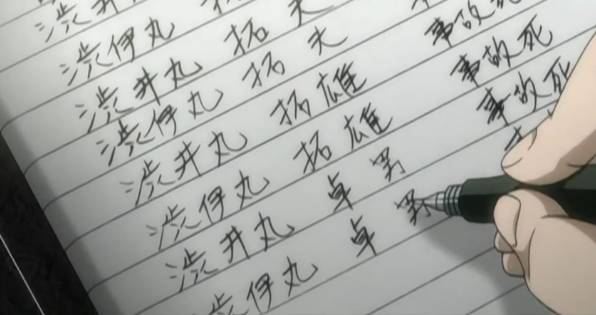 渋井
渋伊丸 拓
渋井丸 拓夫
渋伊丸 拓夫
渋井丸 拓雄 事故死
渋伊丸 拓雄 事故死
渋井丸 卓男 事故死
渋伊丸 卓男